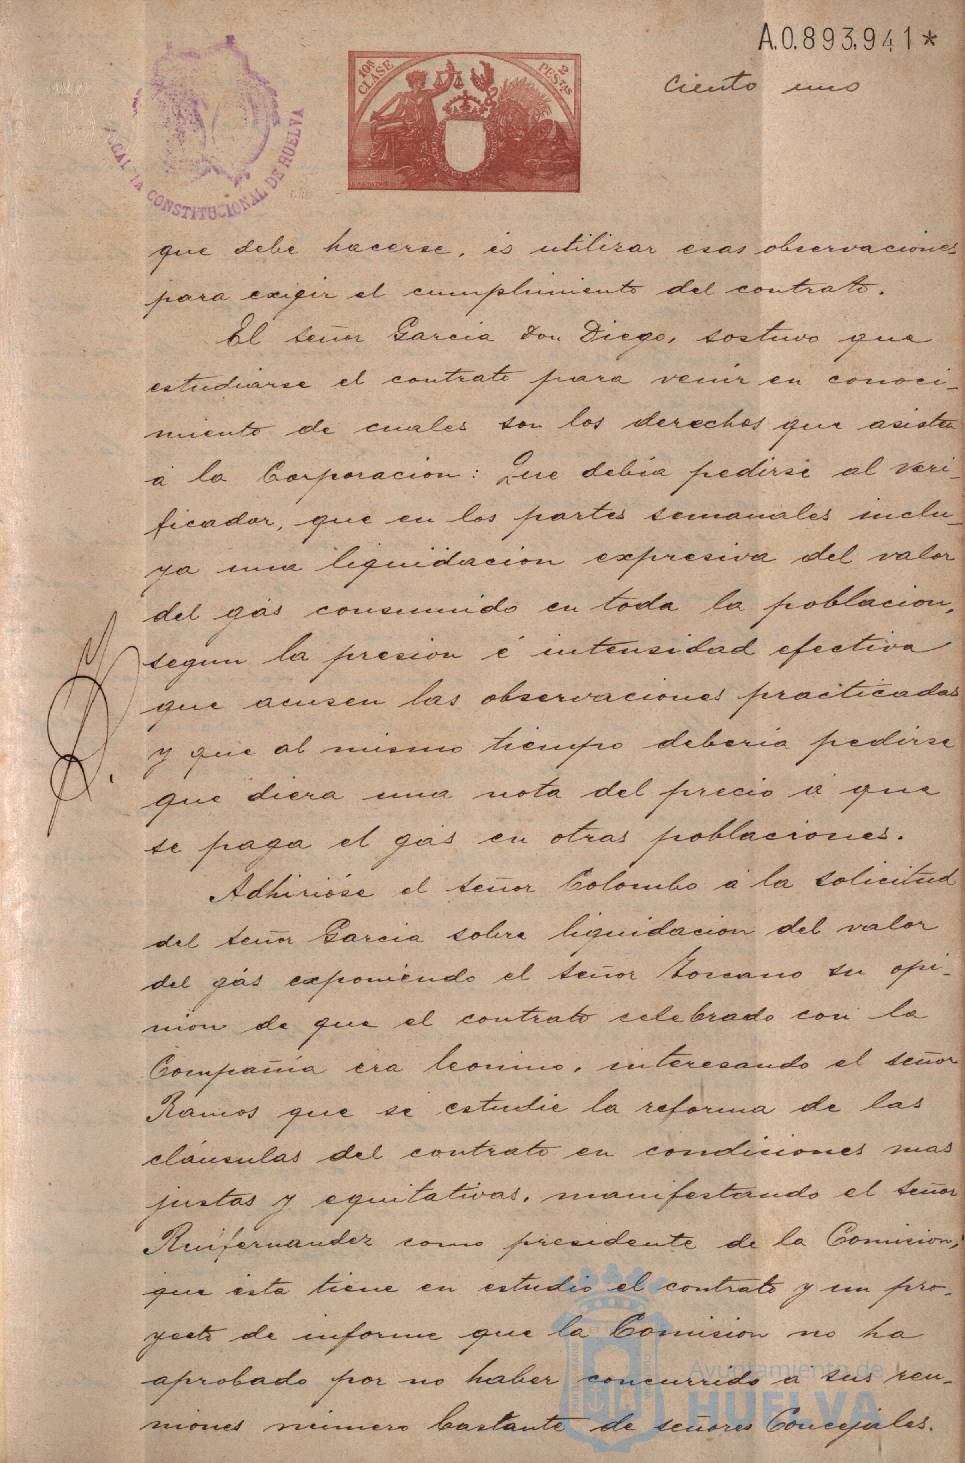 A.0.893.941*
ciento uno
10ª CLASE
2 PESETAS
ALCALDIA CONSTITUCIONAL DE HUELVA
que debe hacerse, és utilizar esas observaciones
para exigir el cumplimiento del contrato.
El señor Garcia Don Diego, sostuvo que
estudiarse el contrato para venir en conoci-
miento de cuales son los derechos que asisten
á la Corporacion: Que debia pedirse al veri-
ficador, que en los partes semanales inclu-
ya una liquidacion expresiva del valor
del gás consumido en toda la poblacion,
segun la presion é intensidad efectiva
que acusen las observaciones practicadas
y que al mismo tiempo deberia pedirse
que diera una nota del precio á que
se paga el gás en otras poblaciones.
Adhirióse el señor Colombo á la solicitud
del señor Garcia sobre liquidacion del valor
del gás exponiendo el señor Toscano su opi-
nion de que el contrato celebrado con la
Compañia era leonino, interesando el señor
Ramos que se estudie la reforma de las
cláusulas del contrato en condiciones mas
justas y equitativas, manifestando el señor
Ruifernandez como presidente de la Comision,
que ésta tiene en estudio el contrato y un pro-
yecto de informe que la Comision no ha
aprobado por no haber concurrido a sus reu-
niones número bastante de señores Concejales.
Ayuntamiento de
HUELVA